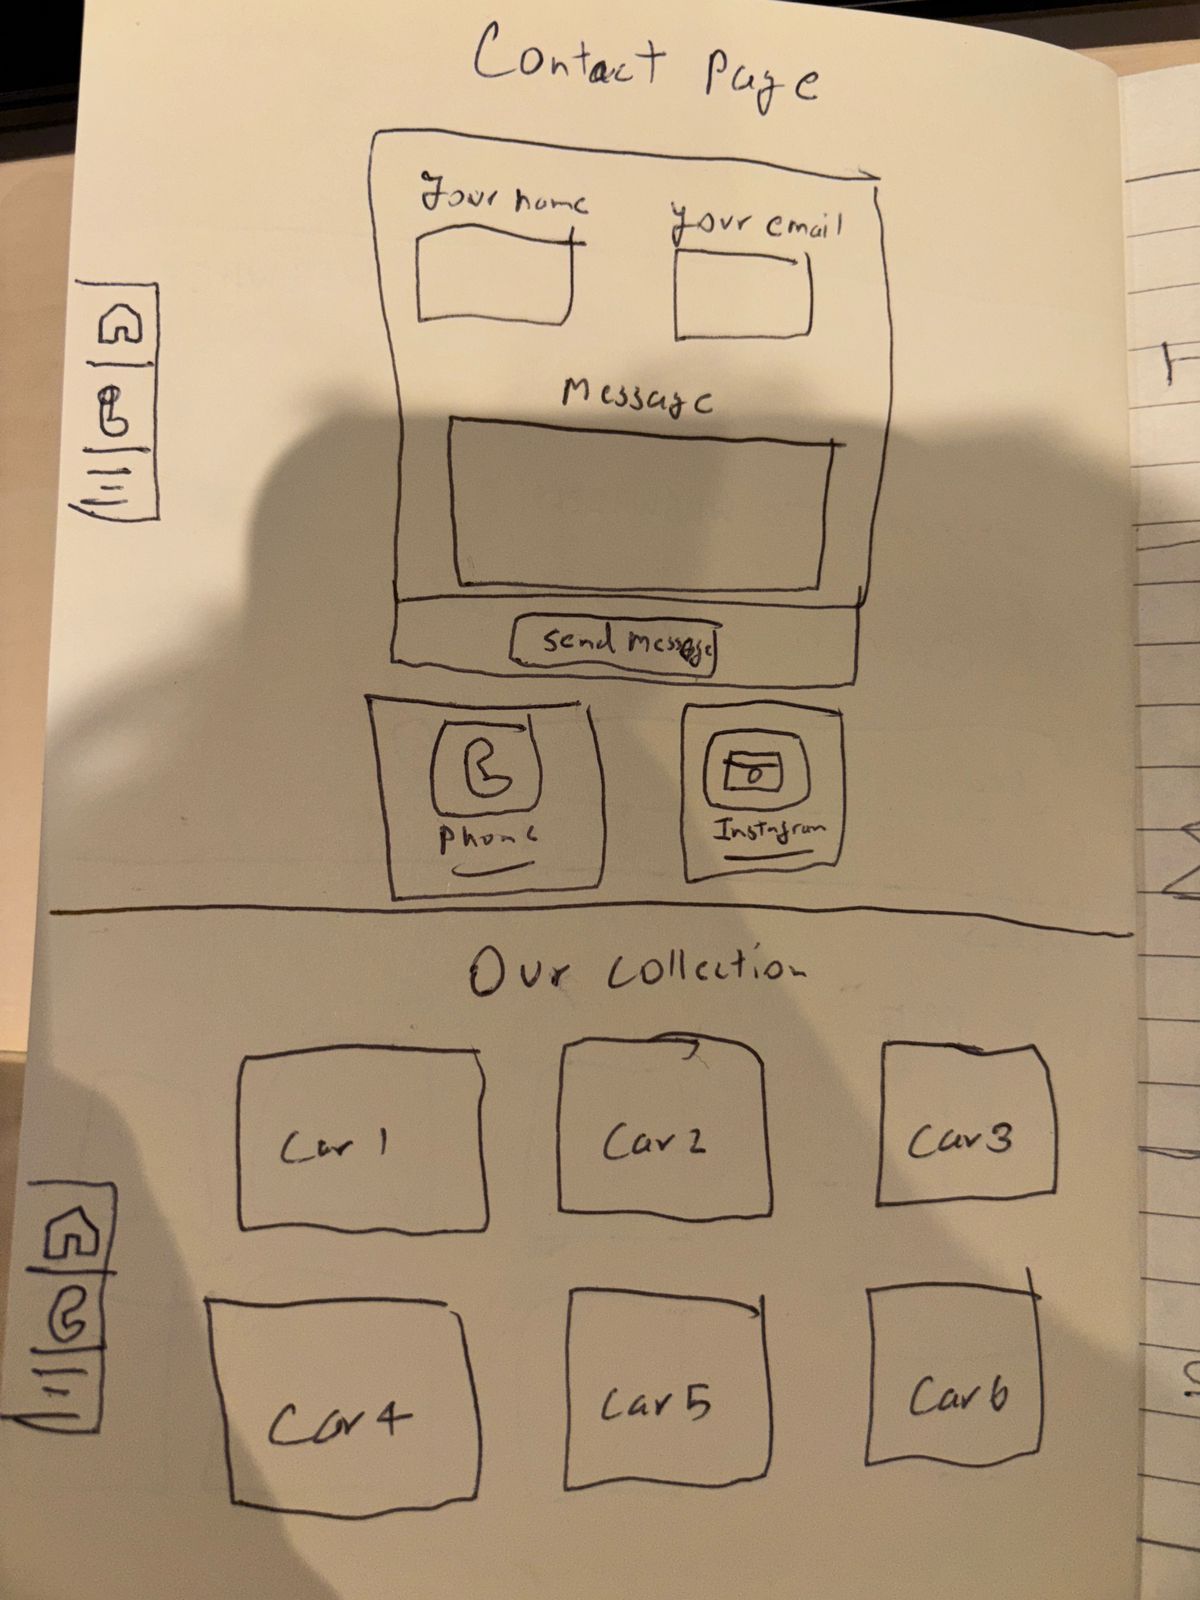 Contact Page
Your name
Your email
Message
Send Message
Phone
Instagram
Our Collection
Car 1
Car 2
Car 3
Car 4
Car 5
Car 6